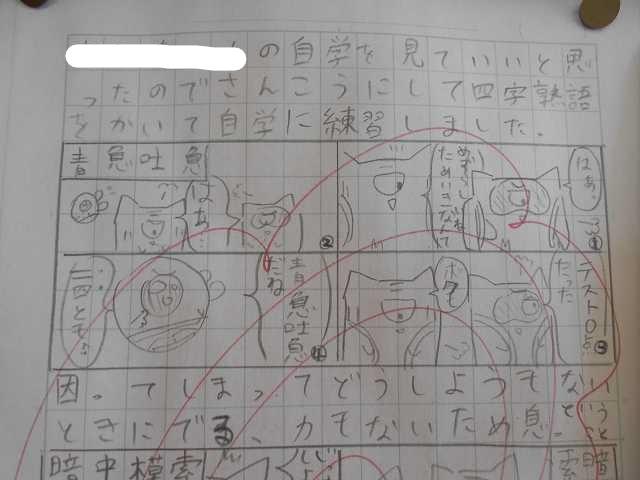 の自学を見ていいと思
ったのでさんこうにして四字熟語
をかいて自学に練習しました。
青息吐息
はぁ…
①
ためいきなんて
②
はぁ…
テスト0点
だった
③
ボクも
青息吐息
だね
④
困ってしまってどうしようもない
ときにでる、力もないため息。
暗中模索